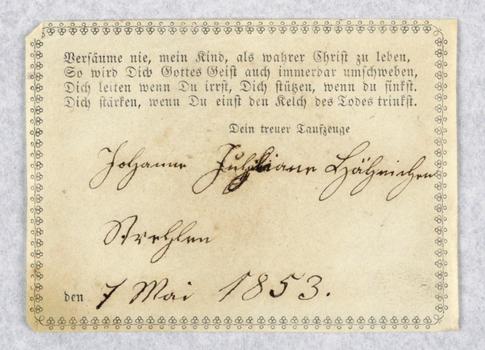 Versäume nie, mein Kind, als wahrer Christ zu leben,
So wird Dich Gottes Geist auch immerdar umschweben,
Dich leiten wenn Du irrst, Dich stützen, wenn du sinkst.
Dich stärken, wenn Du einst den Kelch des Todes trinkst.
Dein treuer Taufzeuge
Johanne Juliane
Strehlen
den 7 Mai 1853.